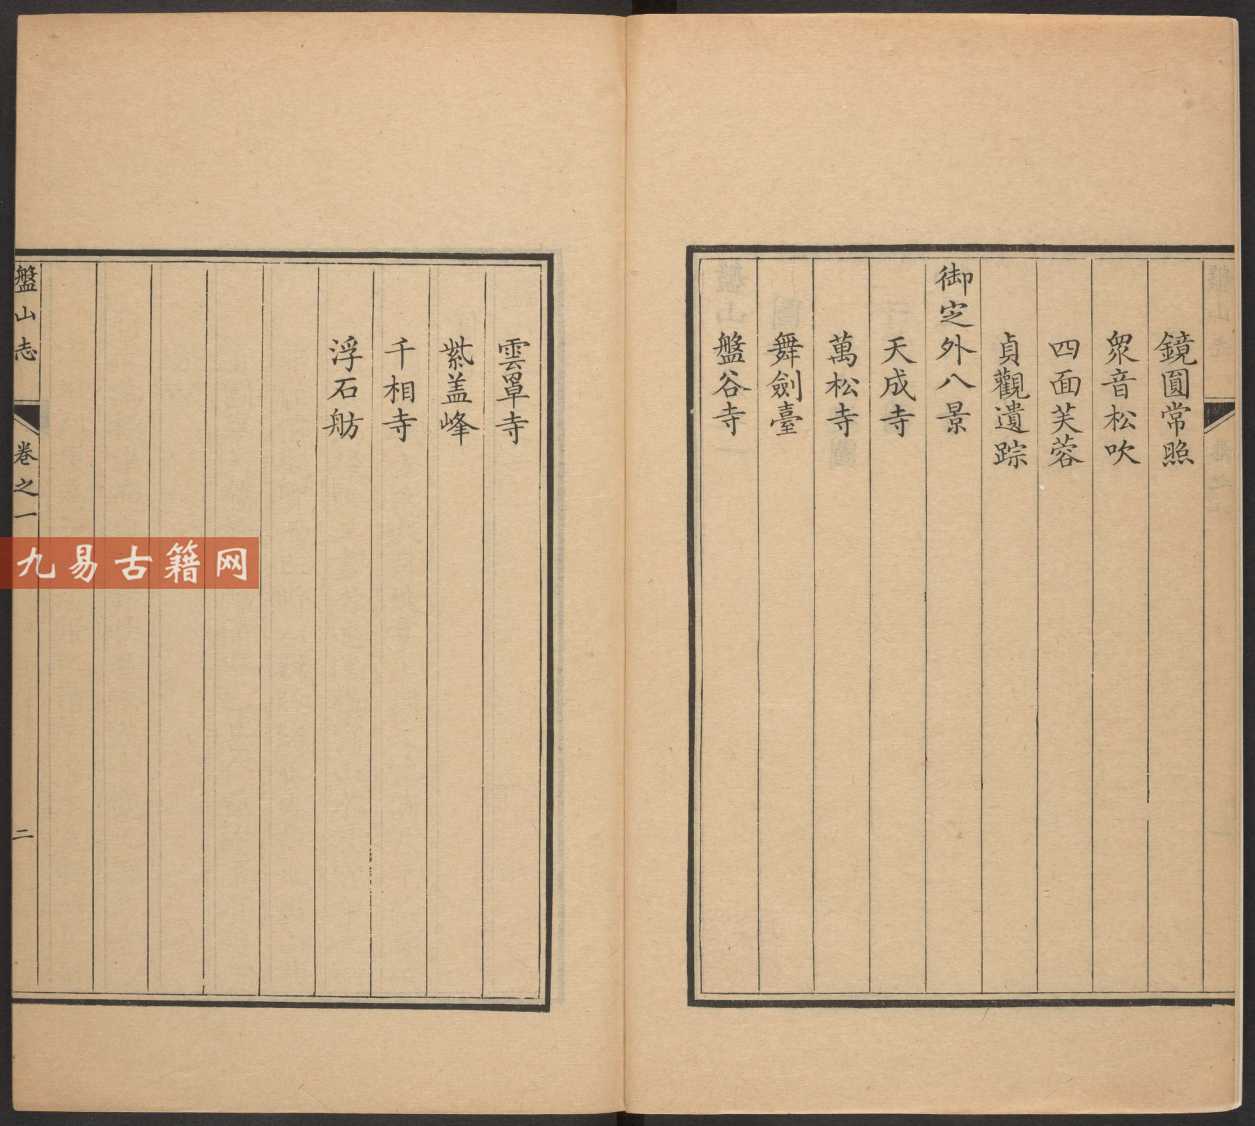 鏡圓常照
衆音松吹
四面芙蓉
貞觀遺踪
御定外八景
天成寺
萬松寺
舞劍臺
盤谷寺
雲罩寺
紫盖峰
千相寺
浮石舫
盤山志
卷之一
二
九易古籍网